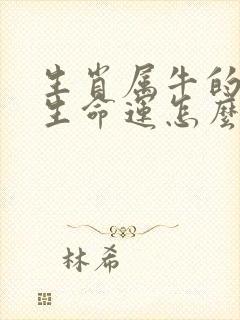 生肖属牛的
生命運怎麼
林希